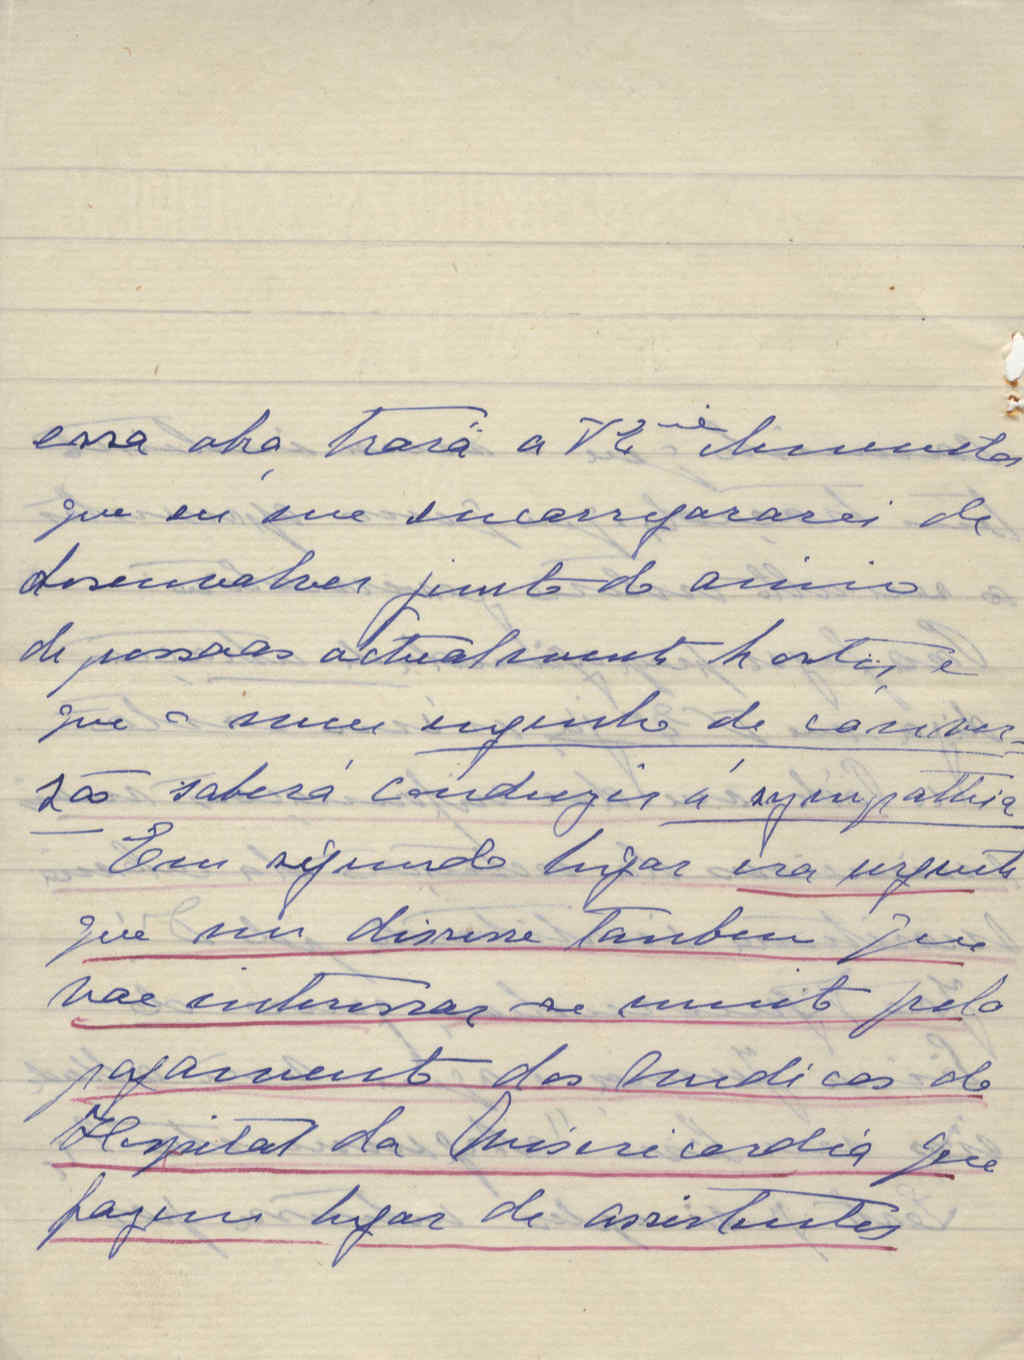 essa obra trará a V Ex.cia elementos
que eu me encarregararei de
desenvolver junto do animo
de pessoas actualmente hostis, e
que o meu engenho de conver-
são saberá conduzir á sympathia
Em segundo lugar era urgente
que me dissesse tambem que
vae interessar-se muito pelo
pagamento dos medicos do
Hospital da Misericordia que
fazem lugar de assistentes